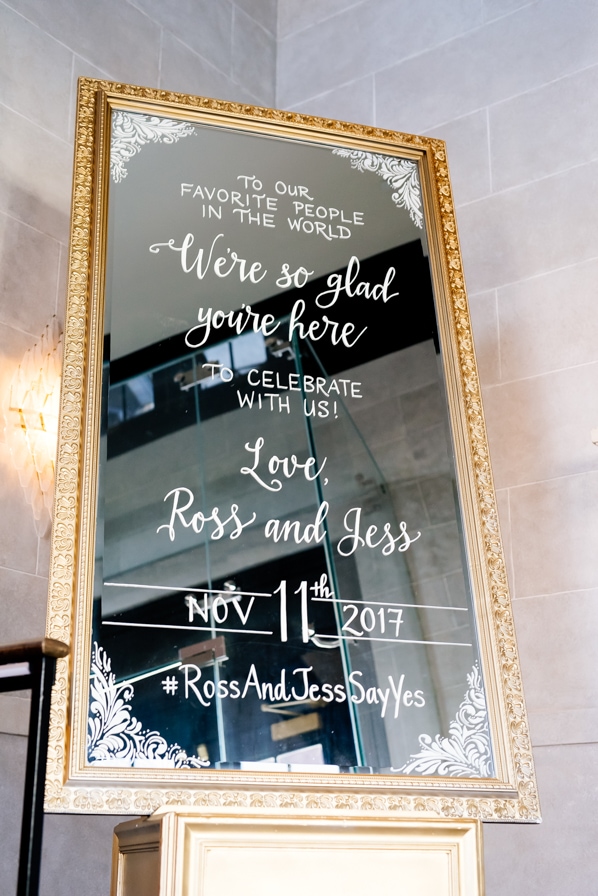 TO OUR
FAVORITE PEOPLE
IN THE WORLD
We're so glad
you're here
TO CELEBRATE
WITH US!
Love,
Ross and Jess
NOV 11th 2017
#RossAndJessSayYes